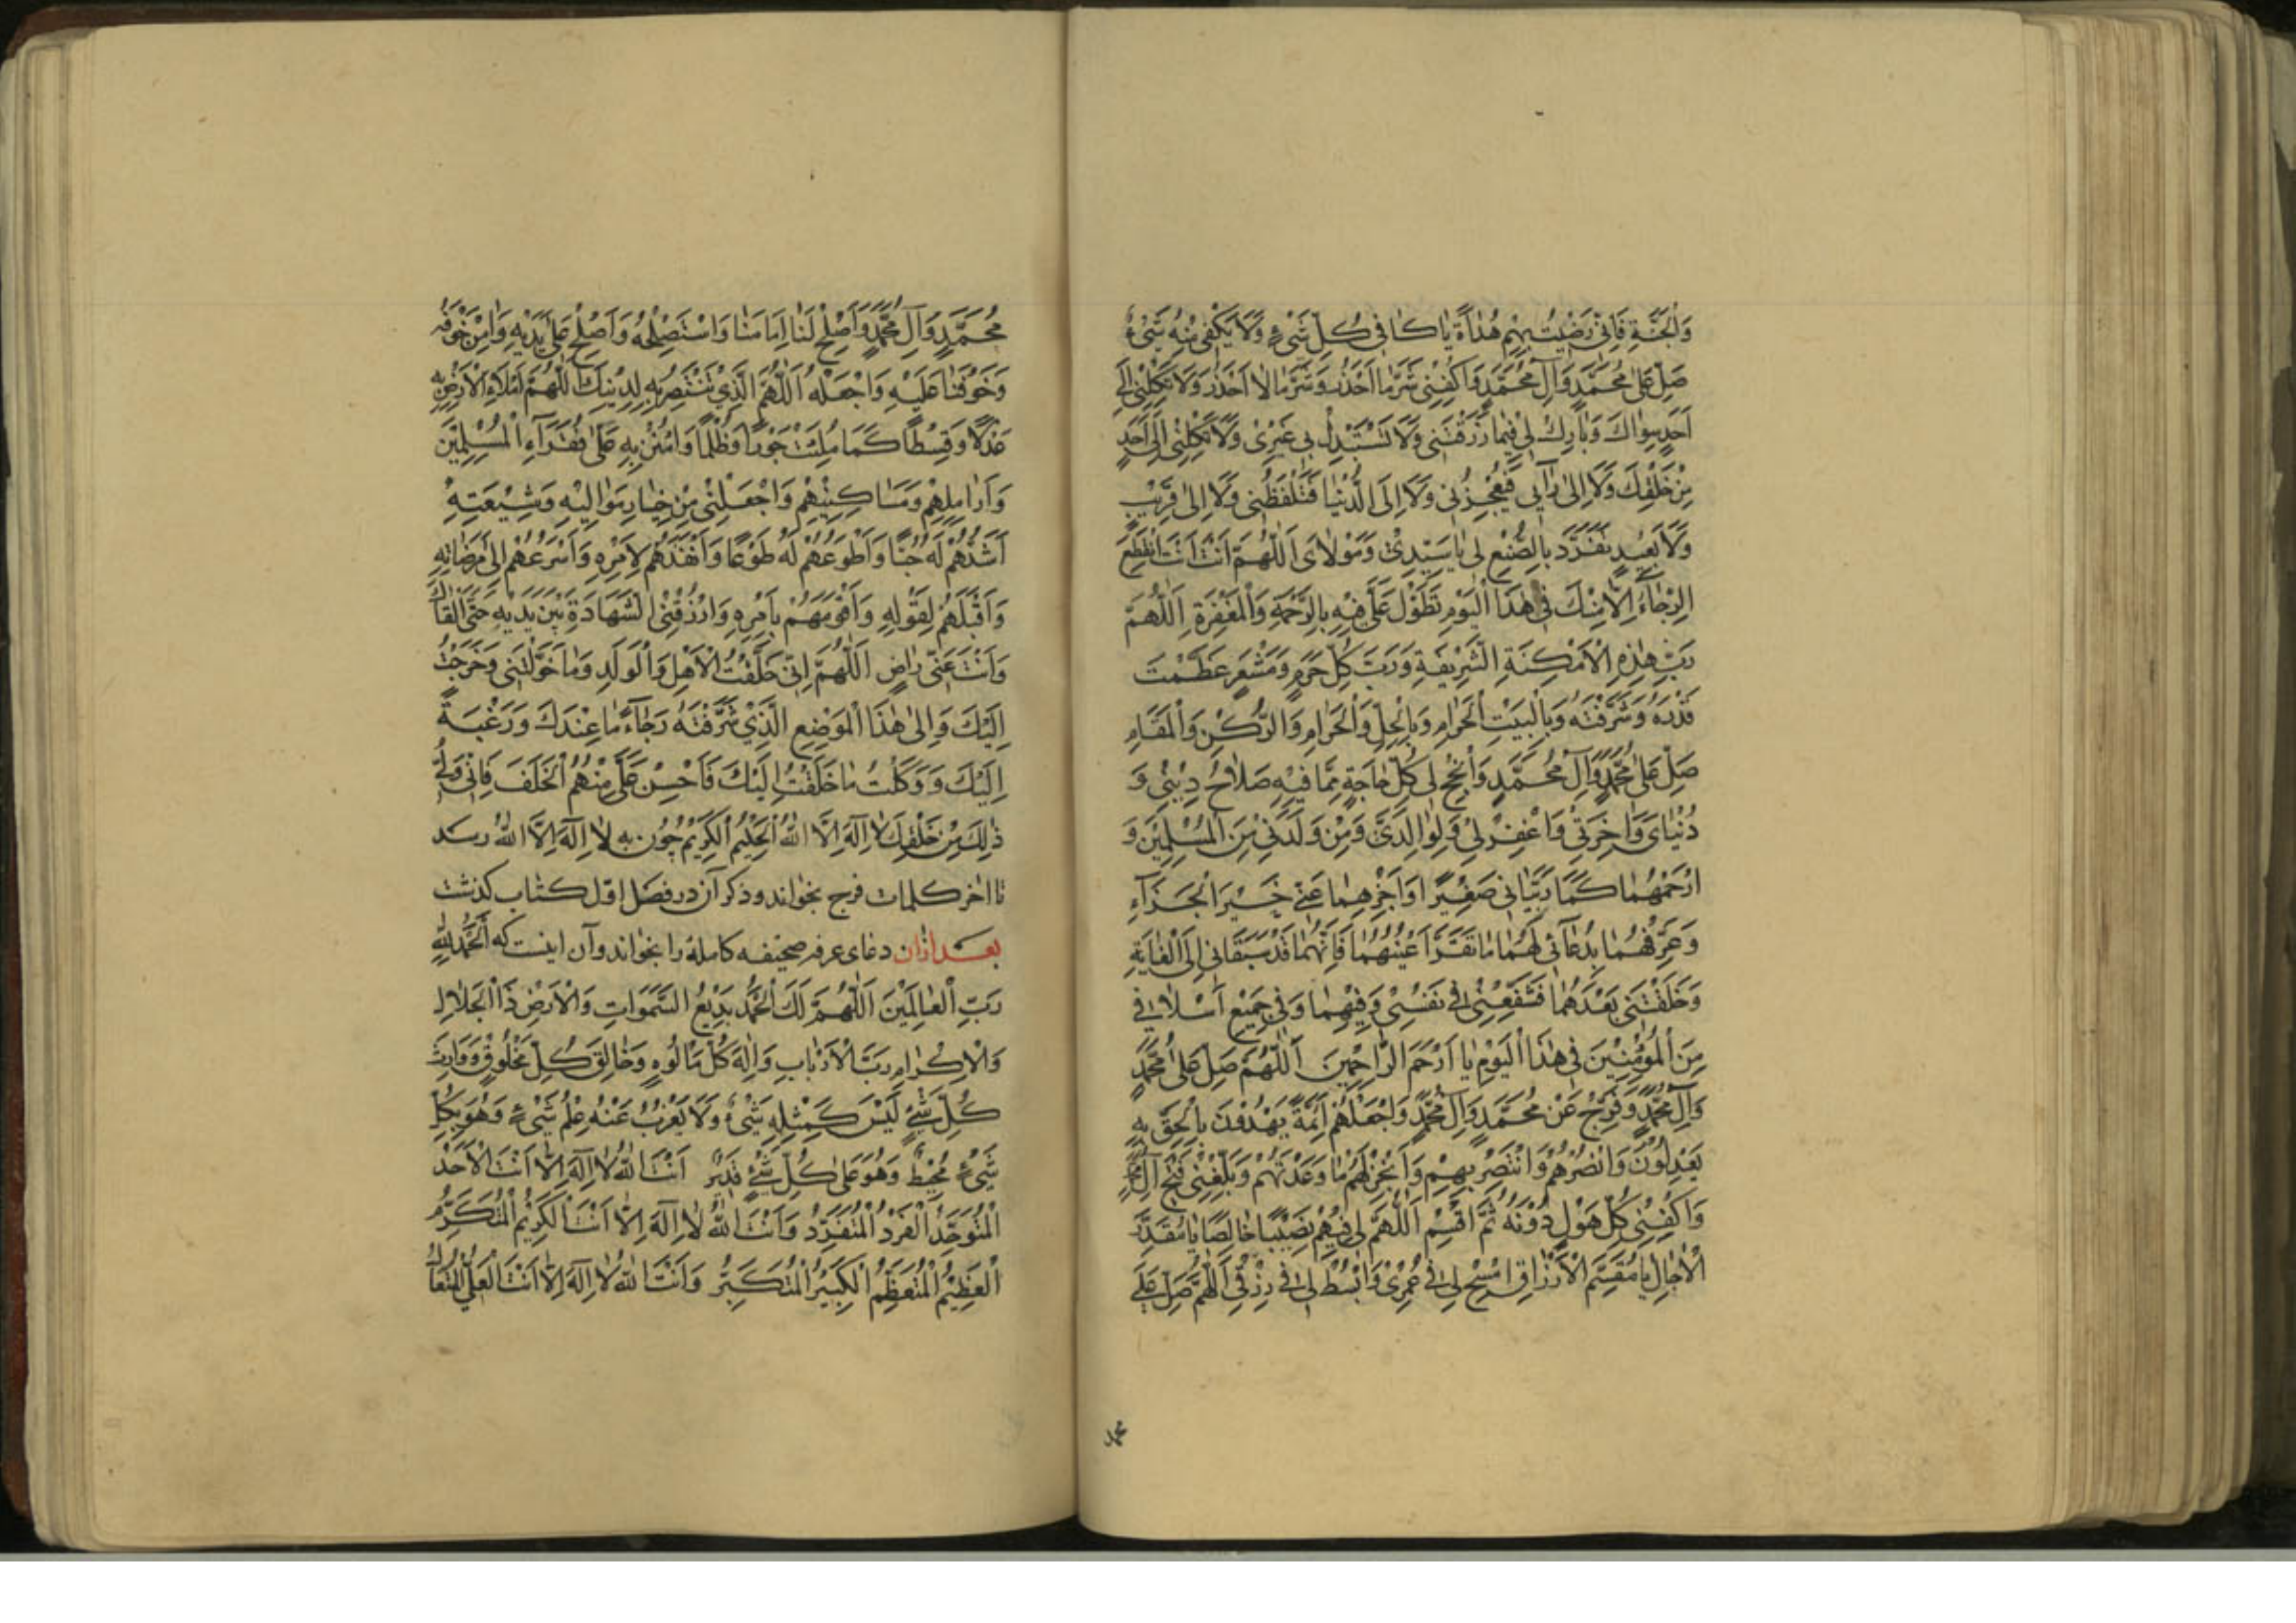 وَالْجَنَّةِ فَاِنّى رَضيْتُ بِهِمْ هُداةً يا كافى كُلِّ شَىْءٍ وَلا يَكْفى مِنْهُ شَىْءٌ
صَلِّ عَلى مُحَمَّدٍ وَآلِ مُحَمَّدٍ وَاكْفِنى شَرَّ ما اَحْذَرُ وَشَرَّ ما لا اَحْذَرُ وَلا تَكِلْنى اِلى
اَحَدٍ سِواكَ وَبارِكْ لى فيما رَزَقْتَنى وَلا تَسْتَبْدِلْ بى غَيْرى وَلا تَكِلْنى اِلى اَحَدٍ
مِنْ خَلْقِكَ وَلا اِلى رَاْيى فَيُعْجِزُنى وَلا اِلَى الدُّنْيا فَتَلْفَظُنى وَلا اِلى قَريْبٍ
وَلا بَعيْدٍ تَفَرَّدْ بِالصُّنْعِ لى يا سَيِّدِيْ وَمَوْلاىَ اَللّهُمَّ اَنْتَ اَنْتَ انْقَطَعَ
الرَّجاءُ اِلّا مِنْكَ فى هٰذَا الْيَوْمِ تَطَوَّلْ عَلَىَّ فيْهِ بِالرَّحْمَةِ وَالْمَغْفِرَةِ اَللّهُمَّ
رَبَّ هٰذِهِ الْاَمْكِنَةِ الشَّريْفَةِ وَرَبَّ كُلِّ حَرَمٍ وَمَشْعَرٍ عَظَّمْتَ
قَدْرَهُ وَشَرَّفْتَهُ وَبِالْبَيْتِ الْحَرامِ وَبِالْحِلِّ وَالْحَرامِ وَالرُّكْنِ وَالْمَقامِ
صَلِّ عَلى مُحَمَّدٍ وَآلِ مُحَمَّدٍ وَاَنْجِحْ لى كُلَّ حاجَةٍ مِمّا فيْهِ صَلاحُ ديْنيْ وَ
دُنْياىَ وَاخِرَتيْ وَاغْفِرْ ليْ وَلِوالِدَىَّ وَمَنْ وَلَدَنيْ مِنَ الْمُسْلِميْنَ وَ
ارْحَمْهُما كَما رَبَّيانى صَغيْرًا وَاَجْزِهِما عَنّى خَيْرَ الْجَزآءِ
وَعَرِّفْهُما بِدُعآئى لَهُما ما تَقَرَّ اَعْيُنُهُما فَاِنَّهُما قَدْ سَبَقانى اِلَى الْغايَةِ
وَخَلَّفْتَنى بَعْدَهُما فَشَفِّعْنى فى نَفْسيْ وَفيْهِما وَفى جَميْعِ اَسْلافى
مِنَ الْمُؤْمِنيْنَ فى هٰذَا الْيَوْمِ يا اَرْحَمَ الرّاحِميْنَ اَللّهُمَّ صَلِّ عَلى مُحَمَّدٍ
وَآلِ مُحَمَّدٍ وَفَرِّجْ عَنْ مُحَمَّدٍ وَآلِ مُحَمَّدٍ وَاجْعَلْهُمْ اَئِمَّةً يَهْدُوْنَ بِالْحَقِّ بِهِ
يَعْدِلُوْنَ وَانْصُرْهُمْ وَانْتَصِرْ بِهِمْ وَاَنْجِزْ لَهُمْ ما وَعَدْتَهُمْ وَبَلِّغْنى فَتْحَ آلِ مُحَمَّدٍ
وَاكْفِنى كُلَّ هَوْلٍ دُوْنَهُ ثُمَّ اقْسِمْ اَللّهُمَّ لى فيْهِمْ نَصيْبًا خالِصًا يا مُقَدِّرَ
الْاٰجالِ يا مُقَسِّمَ الْاَرْزاقِ افْسَحْ لى فى عُمْرىْ وَابْسُطْ لى فى رِزْقى اَللّهُمَّ صَلِّ عَلى
محمد
مُحَمَّدٍ وَآلِ مُحَمَّدٍ وَاَصْلِحْ لَنا اِمامَنا وَاسْتَصْلِحْهُ وَاَصْلِحْ عَلى يَدَيْهِ وَاٰمِنْ خَوْفَهُ
وَخَوْفَنا عَلَيْهِ وَاجْعَلْهُ اَللّهُمَّ الَّذيْ تَنْتَصِرُ بِهِ لِديْنِكَ اَللّهُمَّ امْلَاءِ الْاَرْضَ بِهِ
عَدْلًا وَقِسْطًا كَما مُلِئَتْ جَوْرًا وَظُلْمًا وَامْنُنْ بِهِ عَلى فُقَرآءِ الْمُسْلِميْنَ
وَاَرامِلِهِمْ وَمَساكيْنِهِمْ وَاجْعَلْنى مِنْ خِيارِ مَواليْهِ وَشيْعَتِهِ
اَشَدِّهِمْ لَهُ حُبًّا وَاَطْوَعِهِمْ لَهُ طَوْعًا وَاَنْفَذِهِمْ لِاَمْرِهِ وَاَسْرَعِهِمْ اِلى مَرْضاتِهِ
وَاَقْبَلِهِمْ لِقَوْلِهِ وَاَقْوَمِهِمْ بِاَمْرِهِ وَارْزُقْنى الشَّهادَةَ بَيْنَ يَدَيْهِ حَتّى اَلْقاكَ
وَاَنْتَ عَنّى راضٍ اَللّهُمَّ اِنّى خَلَّفْتُ الْاَهْلَ وَالْوَلَدَ وَما خَوَّلْتَنى وَخَرَجْتُ
اِلَيْكَ وَاِلى هٰذَا الْمَوْضِعِ الَّذيْ شَرَّفْتَهُ رَجآءَ ما عِنْدَكَ وَرَغْبَةً
اِلَيْكَ وَوَكَلْتُ ما خَلَّفْتُ اِلَيْكَ فَاَحْسِنْ عَلَىَّ مِنْهُمُ الْخَلَفَ فَاِنّى وَلِىُّ
ذٰلِكَ مِنْ خَلْقِكَ لا اِلٰهَ اِلَّا اللهُ الْحَليْمُ الْكَريْمُ چون به لا اِلٰهَ اِلَّا اللهُ رسد
تا اخر كلمات فرج بخواند وذكر آن در فصل اوّل كتاب كذشت
بعد ازان دعاى عرفه صحيفه كامله را بخواند وآن اينست كه اَلْحَمْدُ لِلّهِ
رَبِّ الْعالَميْنَ اَللّهُمَّ لَكَ الْحَمْدُ بَديْعَ السَّمٰوَاتِ وَالْاَرْضِ ذَا الْجَلالِ
وَالْاِكْرامِ رَبَّ الْاَرْبابِ وَاِلٰهَ كُلِّ مَالُوْهٍ وَخالِقَ كُلِّ مَخْلُوْقٍ وَوارِثَ
كُلِّ شَىْءٍ لَيْسَ كَمِثْلِهِ شَىْءٌ وَلا يَعْزُبُ عَنْهُ عِلْمُ شَىْءٍ وَهُوَ بِكُلِّ
شَىْءٍ مُحيْطٌ وَهُوَ عَلى كُلِّ شَىْءٍ قَديْرٌ اَنْتَ اللهُ لا اِلٰهَ اِلّا اَنْتَ الْاَحَدُ
الْمُتَوَحِّدُ الْفَرْدُ الْمُتَفَرِّدُ وَاَنْتَ اللهُ لا اِلٰهَ اِلّا اَنْتَ الْكَريْمُ الْمُتَكَرِّمُ
الْعَظيْمُ الْمُتَعَظِّمُ الْكَبيْرُ الْمُتَكَبِّرُ وَاَنْتَ اللهُ لا اِلٰهَ اِلّا اَنْتَ الْعَلِىُّ الْمُتَعالُ